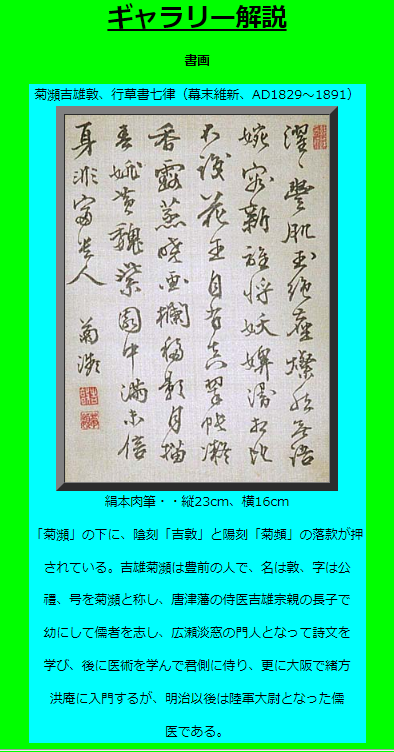 ギャラリー解説
書画
菊瀕吉雄敦、行草書七律（幕末維新、AD1829～1891）
濯々豐肌玉絶塵燦然無語
婉容新誰将妖婢漫相比
不識花王自有真翠帳凝
香露蒸曉畫欄移影月描
春姚黄魏紫園中満未信
身非富貴人 菊瀕
絹本肉筆・・縦23cm、横16cm
「菊瀕」の下に、陰刻「吉敦」と陽刻「菊頻」の落款が押
されている。吉雄菊瀕は豊前の人で、名は敦、字は公
禮、号を菊瀕と称し、唐津藩の侍医吉雄宗親の長子で
幼にして儒者を志し、広瀬淡窓の門人となって詩文を
学び、後に医術を学んで君側に侍り、更に大阪で緒方
洪庵に入門するが、明治以後は陸軍大尉となった儒
医である。